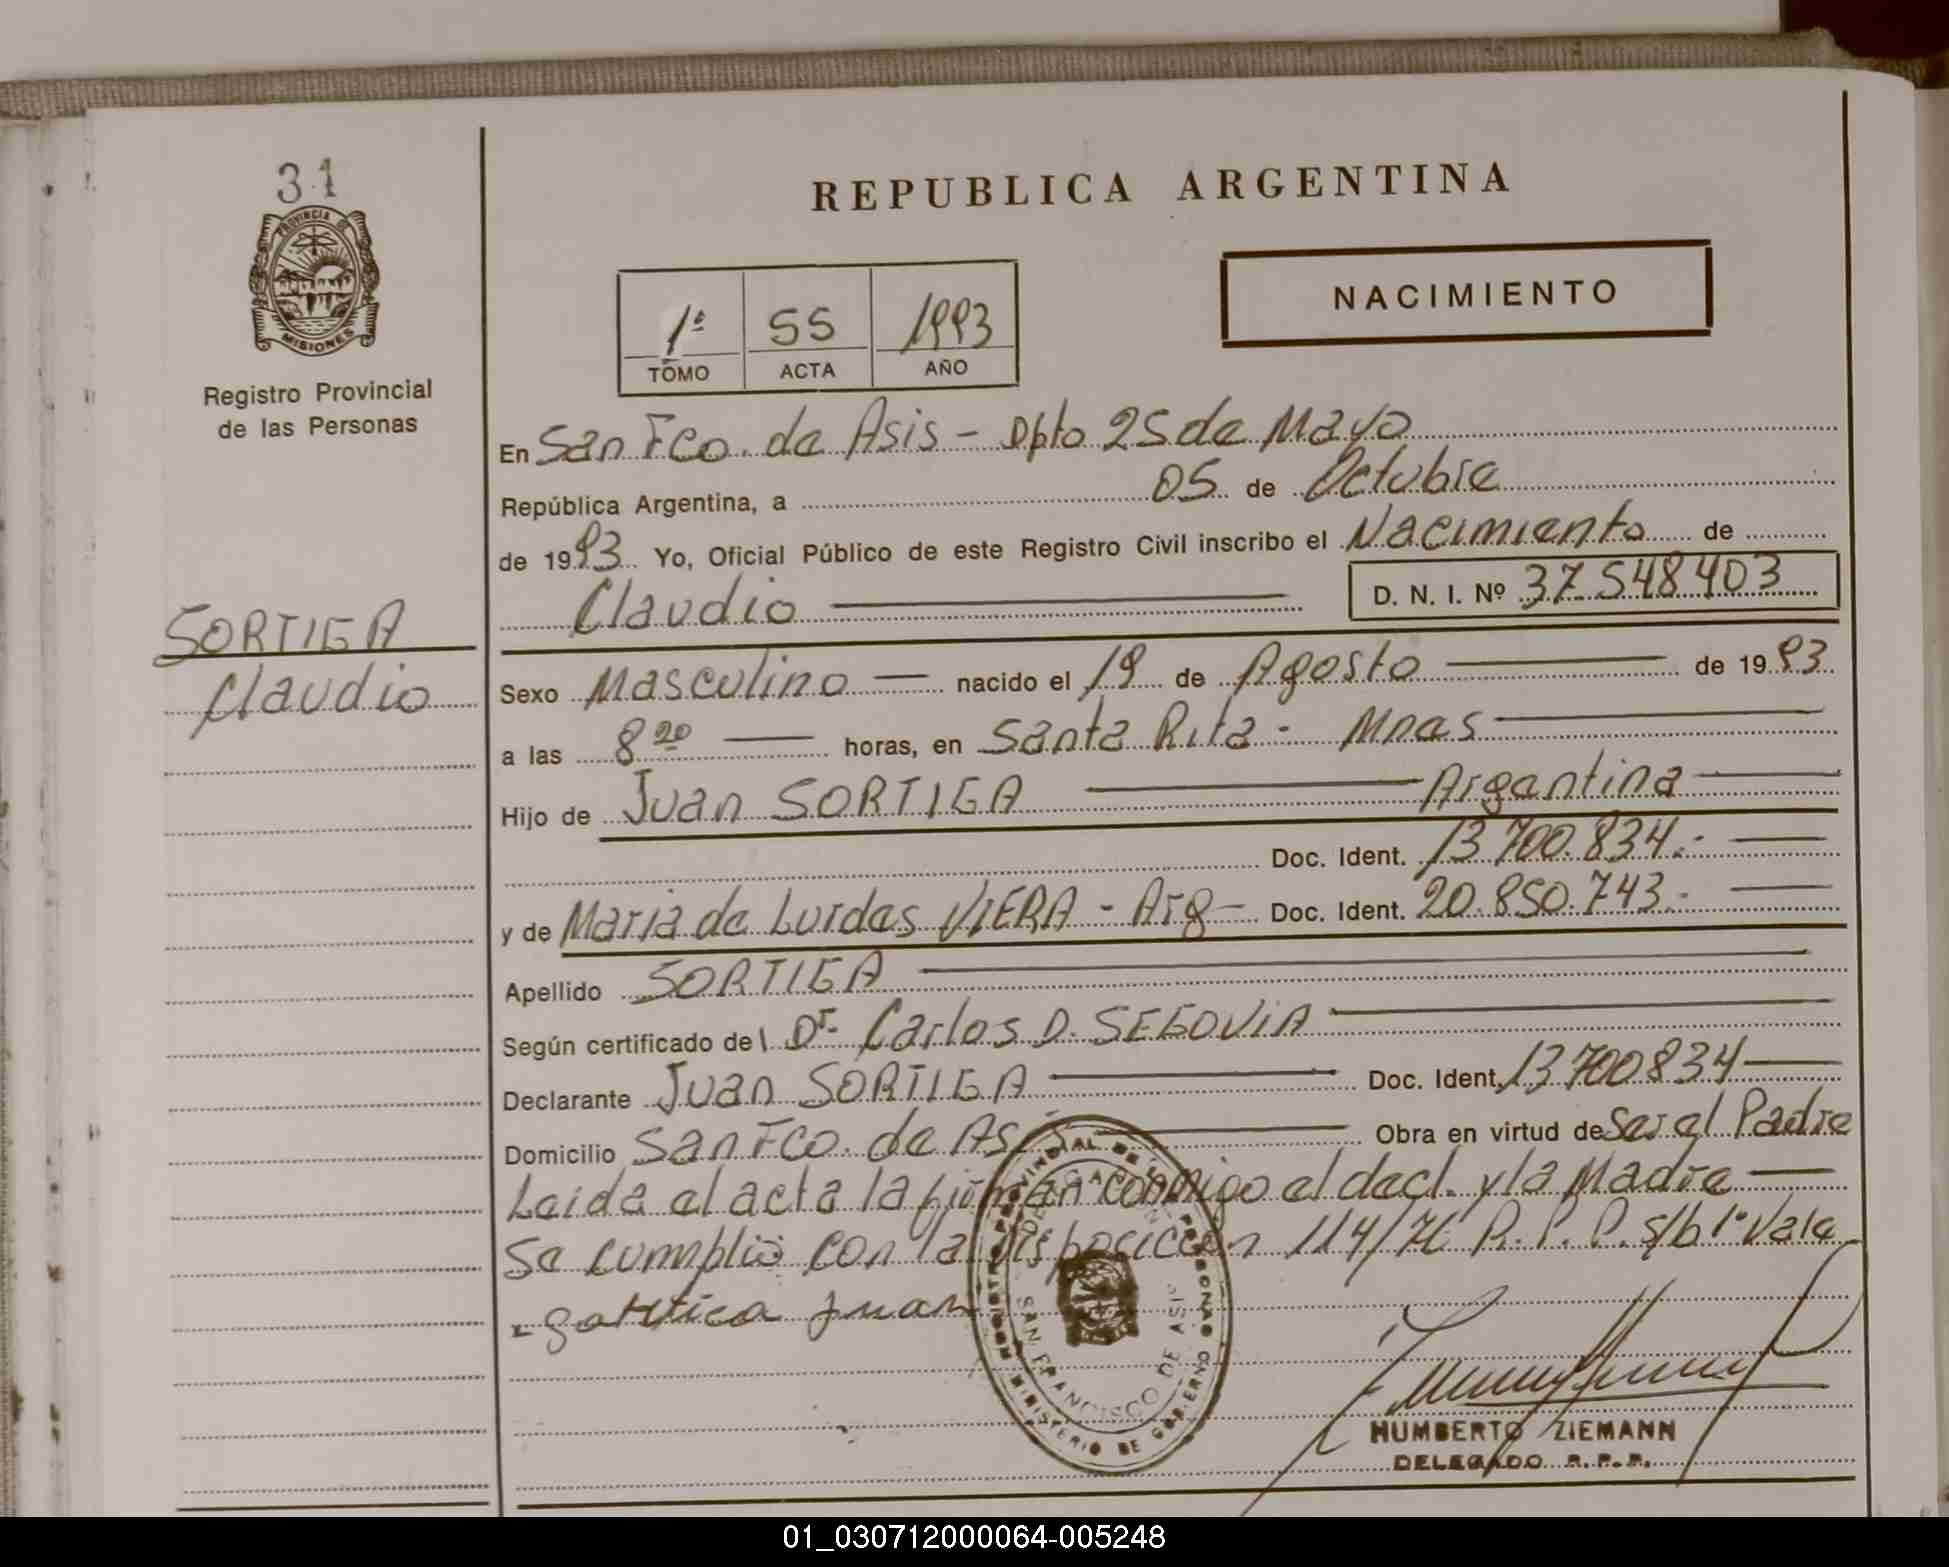 31
PROVINCIA DE
MISIONES
Registro Provincial
de las Personas
SORTIGA
Claudio
REPUBLICA ARGENTINA
NACIMIENTO
1º 55 1993
TOMO ACTA AÑO
En San Fco. de Asis - Dpto 25 de Mayo
República Argentina, a 05 de Octubre
de 1993 Yo, Oficial Público de este Registro Civil inscribo el Nacimiento de
Claudio D. N. I. Nº 37.548403
Sexo Masculino nacido el 19 de Agosto de 1993
a las 8 20 horas, en Santa Rita - Mnes
Hijo de Juan SORTIGA Argentina
Doc. Ident. 13.700.834.-
y de Maria de Lurdes VIERA - Arg - Doc. Ident. 20.850.743.-
Apellido SORTIGA
Según certificado del Dr. Carlos D. SEGOVIA
Declarante Juan SORTIGA Doc. Ident. 13700834
Domicilio San Fco. de Asis Obra en virtud de Ser el Padre
Leida el acta la firman conmigo el decl. y la Madre
Se cumplio con la Disposiccion 114/76 R.P.P. s/b 1º Vale
Juan
REGISTRO PROVINCIAL DE LAS PERSONAS
MINISTERIO DE GOBIERNO
DELEGACION
SAN FRANCISCO DE ASIS
HUMBERTO ZIEMANN
DELEGADO R.P.P.
01_030712000064-005248